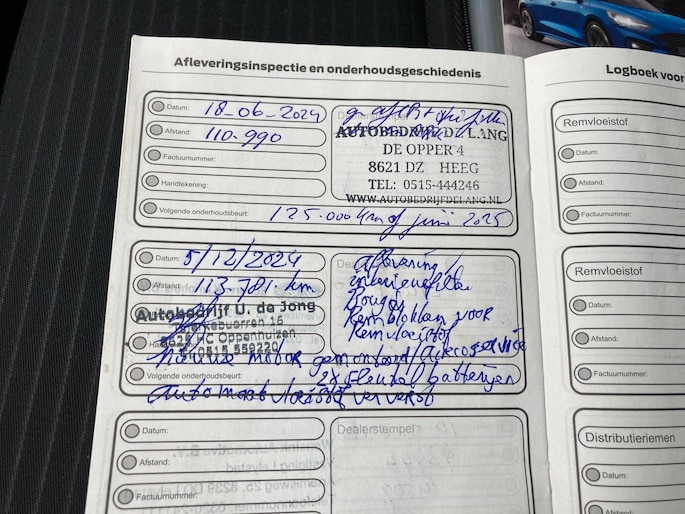 Afleveringsinspectie en onderhoudsgeschiedenis
Datum: 18-06-2024
Afstand: 110-990
Factuurnummer:
Handtekening:
Volgende onderhoudsbeurt: 125.000 km of juni 2025
AUTOBEDRIJF DE LANG
DE OPPER 4
8621 DZ HEEG
TEL: 0515-444246
WWW.AUTOBEDRIJFDELANG.NL
Datum: 5/12/2024
Afstand: 113.781. km
Autobedrijf U. de Jong
16
Oppenhuizen
0515 559220
aflevering
interieurfilter
Bougies
Remblokken voor
Remvloeistof
Nieuwe motor gemonteerd / Aircoservice
Volgende onderhoudsbeurt: 2x sleutel batterijen
automaat vloeistof ververst
Datum:
Afstand:
Factuurnummer:
Dealerstempel
Logboek voor
Remvloeistof
Datum:
Afstand:
Factuurnummer:
Remvloeistof
Datum:
Afstand:
Factuurnummer:
Distributieriemen
Datum:
Afstand: